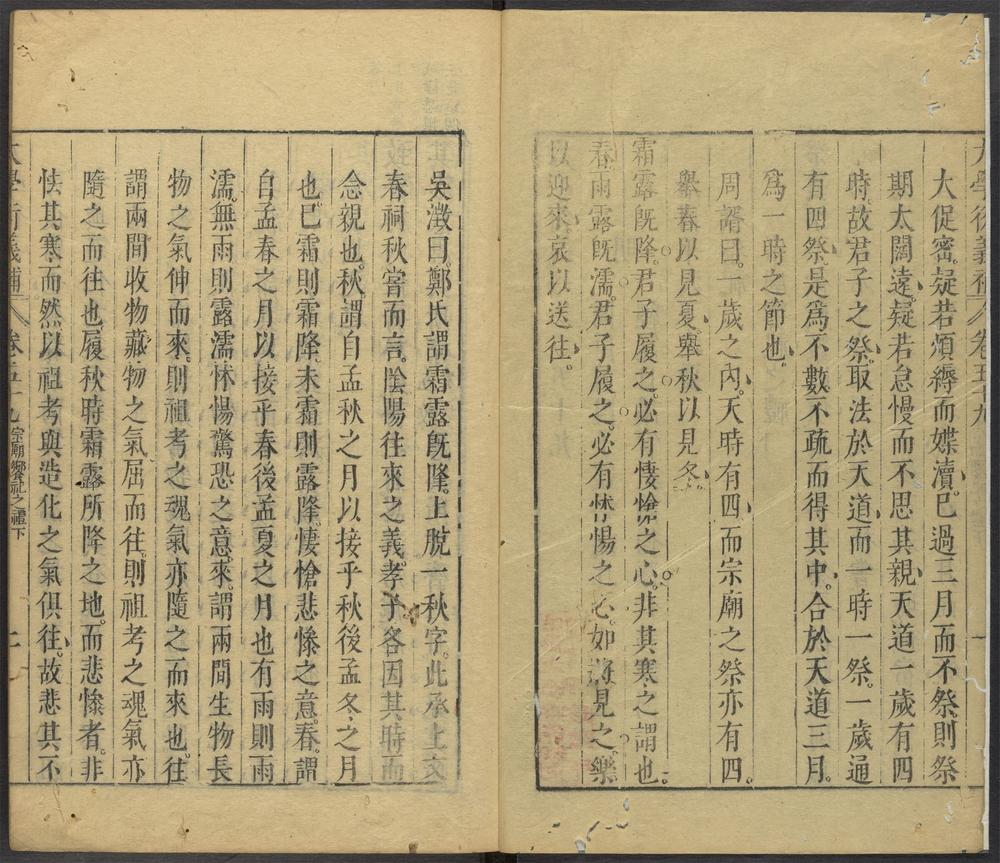 大學衍義補 卷五十九
大促密疑若煩縟而媟瀆已過三月而不祭則祭
期太闊遠疑若怠慢而不思其親天道一歲有四
時故君子之祭取法於天道而一時一祭一歲通
有四祭是爲不數不疏而得其中合於天道三月
爲一時之節也
周諝曰一歲之內天時有四而宗廟之祭亦有四
舉春以見夏舉秋以見冬
霜露旣降君子履之必有悽愴之心非其寒之謂也
春雨露旣濡君子履之必有怵惕之心如將見之樂
以迎來哀以送往
吳澂曰鄭氏謂霜露旣降上脫一秋字此承上文
春祠秋嘗而言陰陽往來之義孝子各因其時而
念親也秋謂自孟秋之月以接乎秋後孟冬之月
也已霜則霜降未霜則露降悽愴悲慘之意春謂
自孟春之月以接乎春後孟夏之月也有雨則雨
濡無雨則露濡怵惕驚恐之意來謂兩間生物長
物之氣伸而來則祖考之魂氣亦隨之而來也往
謂兩間收物藏物之氣屈而往則祖考之魂氣亦
隨之而往也履秋時霜露所降之地而悲慘者非
怯其寒而然以祖考與造化之氣俱往故悲其不
大學衍義補 卷五十九 宗廟饗祀之禮下